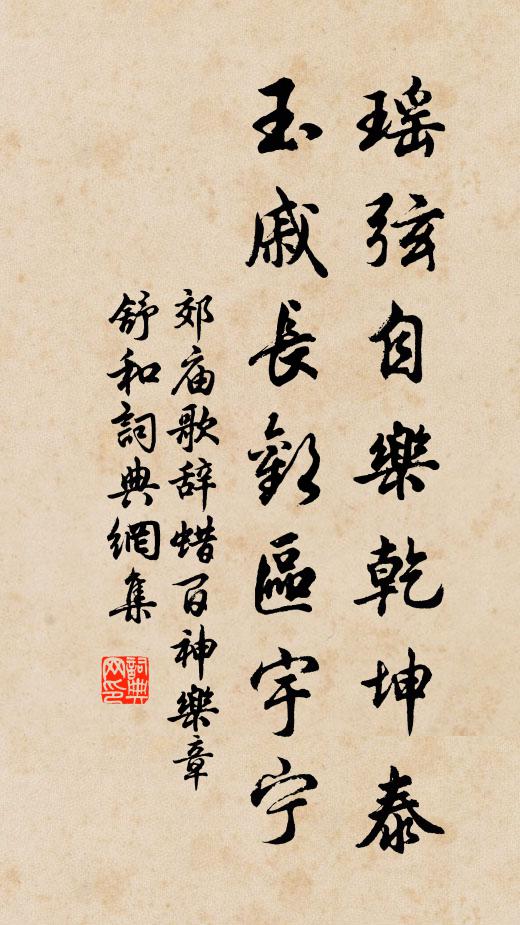 瑶弦自樂乾坤泰
玉戚長歡區宇宁
郊庙歌辞蜡百神樂章
舒和詞典網集
詞典网印